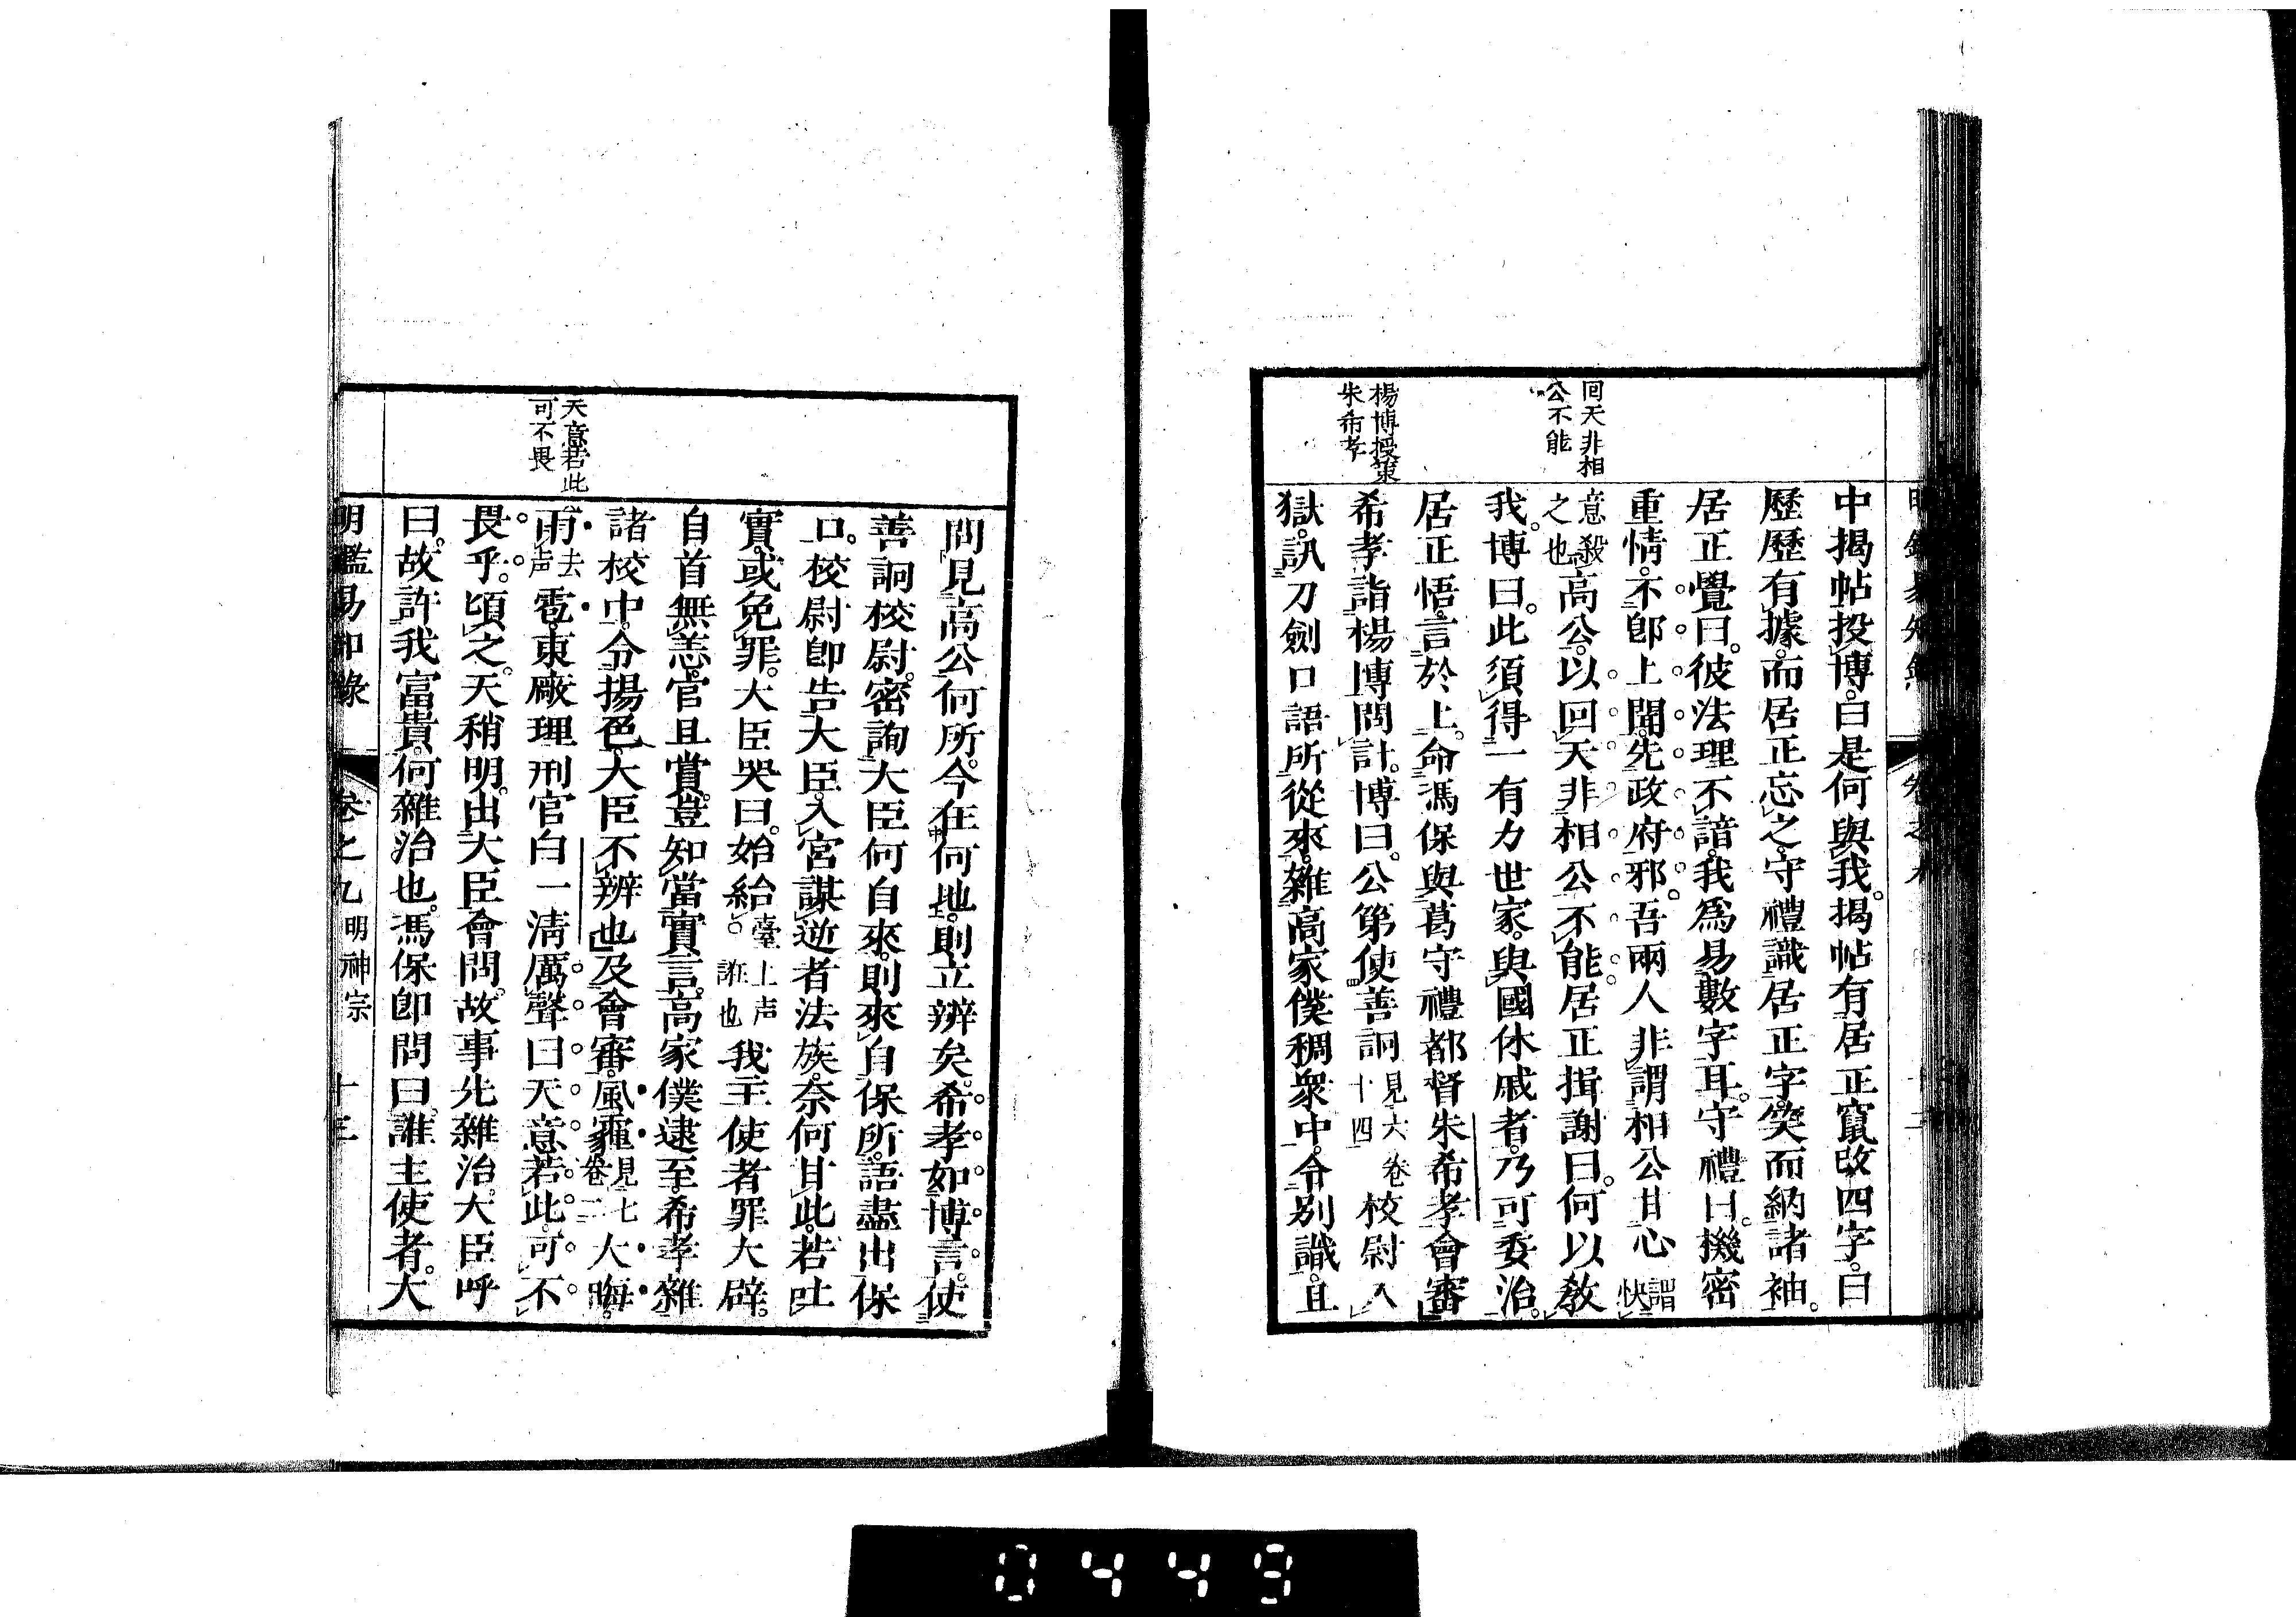 回天非相
公不能
楊博授策
朱希孝
中揭帖投博。曰是何與我。揭帖有居正竄改四字。曰
歷歷有據。而居正忘之。守禮識居正字。笑而納諸袖。
居正覺曰。彼法理不諳。我為易數字耳。守禮曰。機密
重情。不卽上聞。先政府邪。吾兩人非謂相公甘心謂快
意殺之也高公。以回天非相公不能。居正揖謝曰。何以敎
我。博曰。此須得一有力世家。與國休戚者。乃可委治。
居正悟。言於上。命馮保與葛守禮都督朱希孝會審
希孝詣楊博問計。博曰。公第使善詗見六卷十四校尉入
獄。訊刀劍口語所從來。雜高家僕稠衆中。令別識。且
天意若此
可不畏
問見高公何所。今在何地。則立辨矣。希孝如博言。使
善詗校尉。密詢大臣何自來。則來自保所。語盡出保
口。校尉卽告大臣。入宮謀逆者法族。奈何甘此。若吐
實。或免罪。大臣哭曰。始紿臺上声誑也我主使者罪大辟。
自首無恙。官且賞。豈知當實言。高家僕逮至。希孝雜
諸校中。令揚色。大臣不辨也。及會審。風霾見七卷二大晦。
雨去声雹。東廠理刑官白一淸厲聲曰天意若此。可不
畏乎。頃之。天稍明。出大臣會問。故事先雜治。大臣呼
曰。故許我富貴。何雜治也。馮保卽問曰。誰主使者。大
明鑑易知錄
卷之九 明神宗
十三
0449